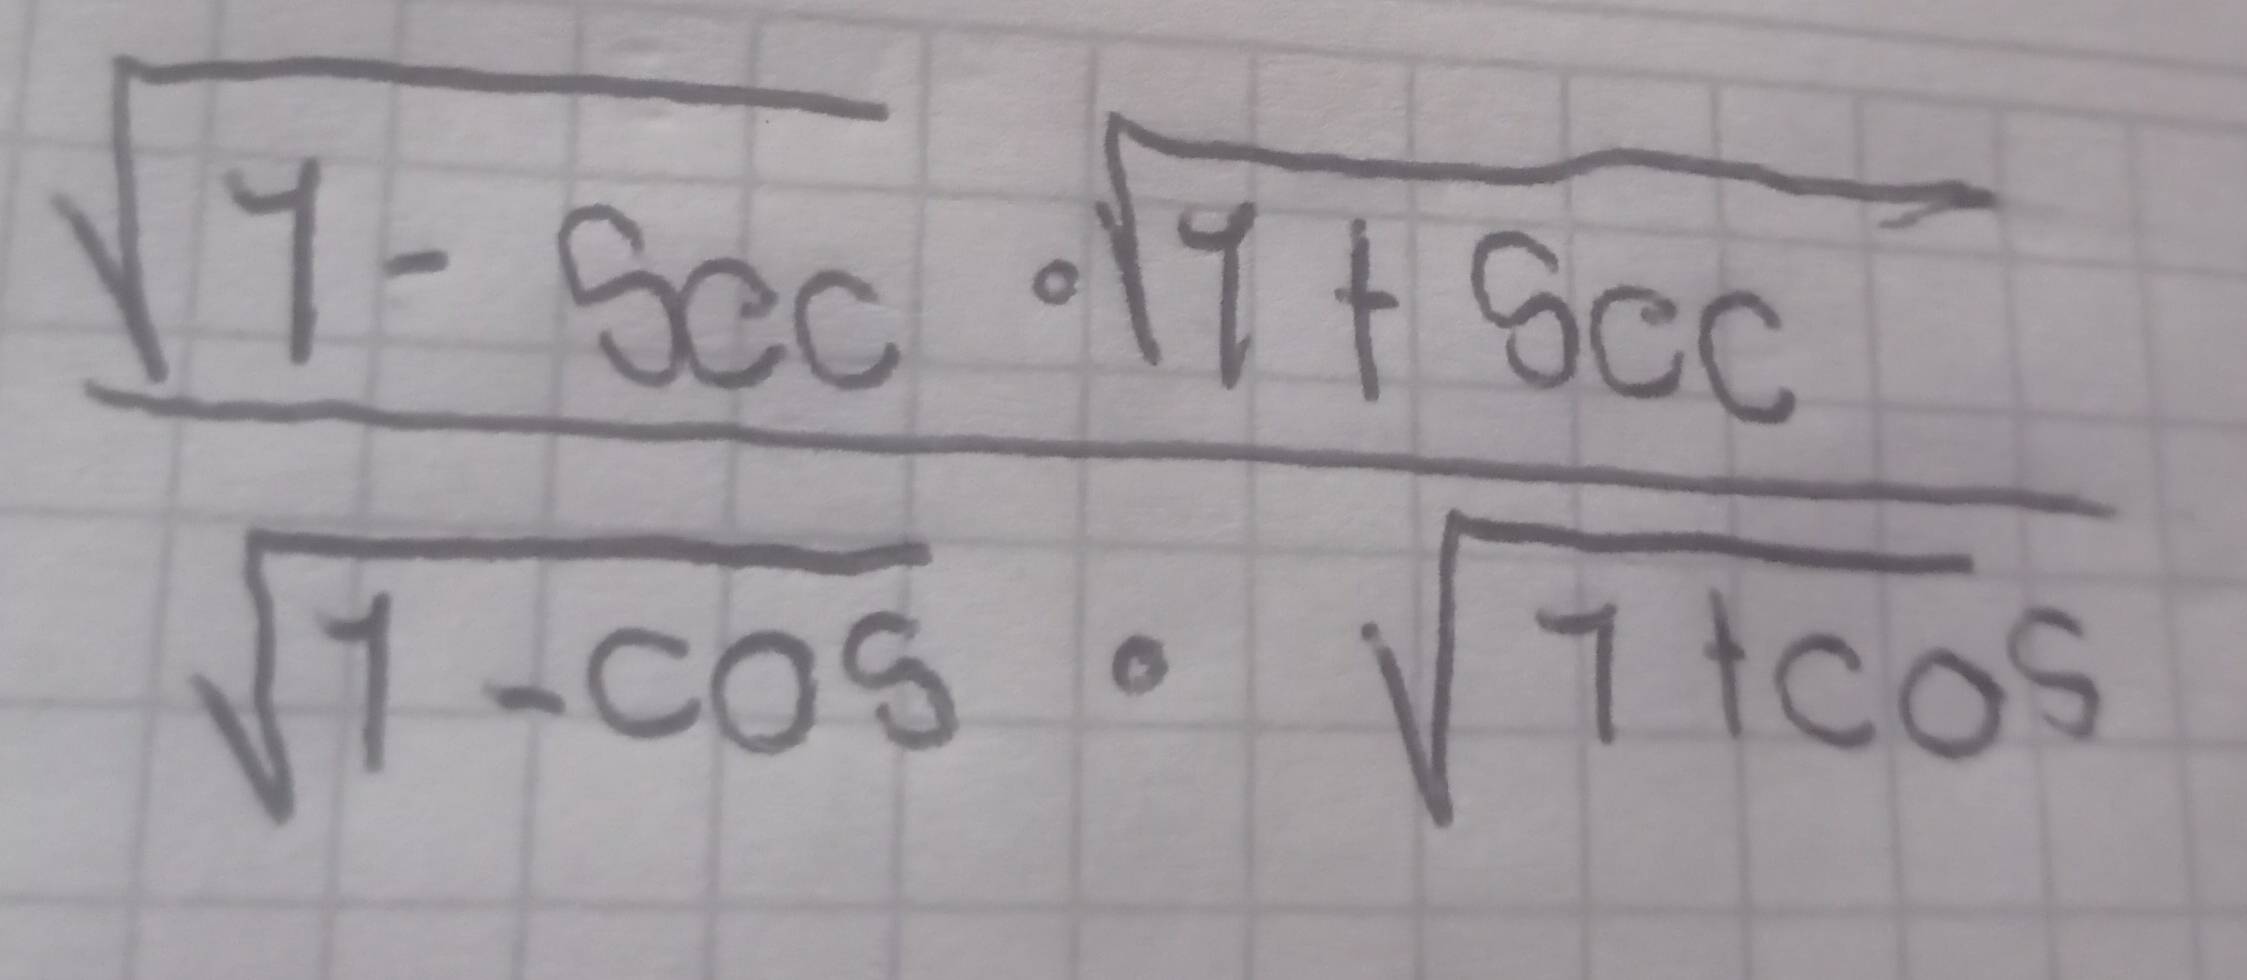 √1 - Sec · √1 + Sec
√1 - cos · √1 + cos